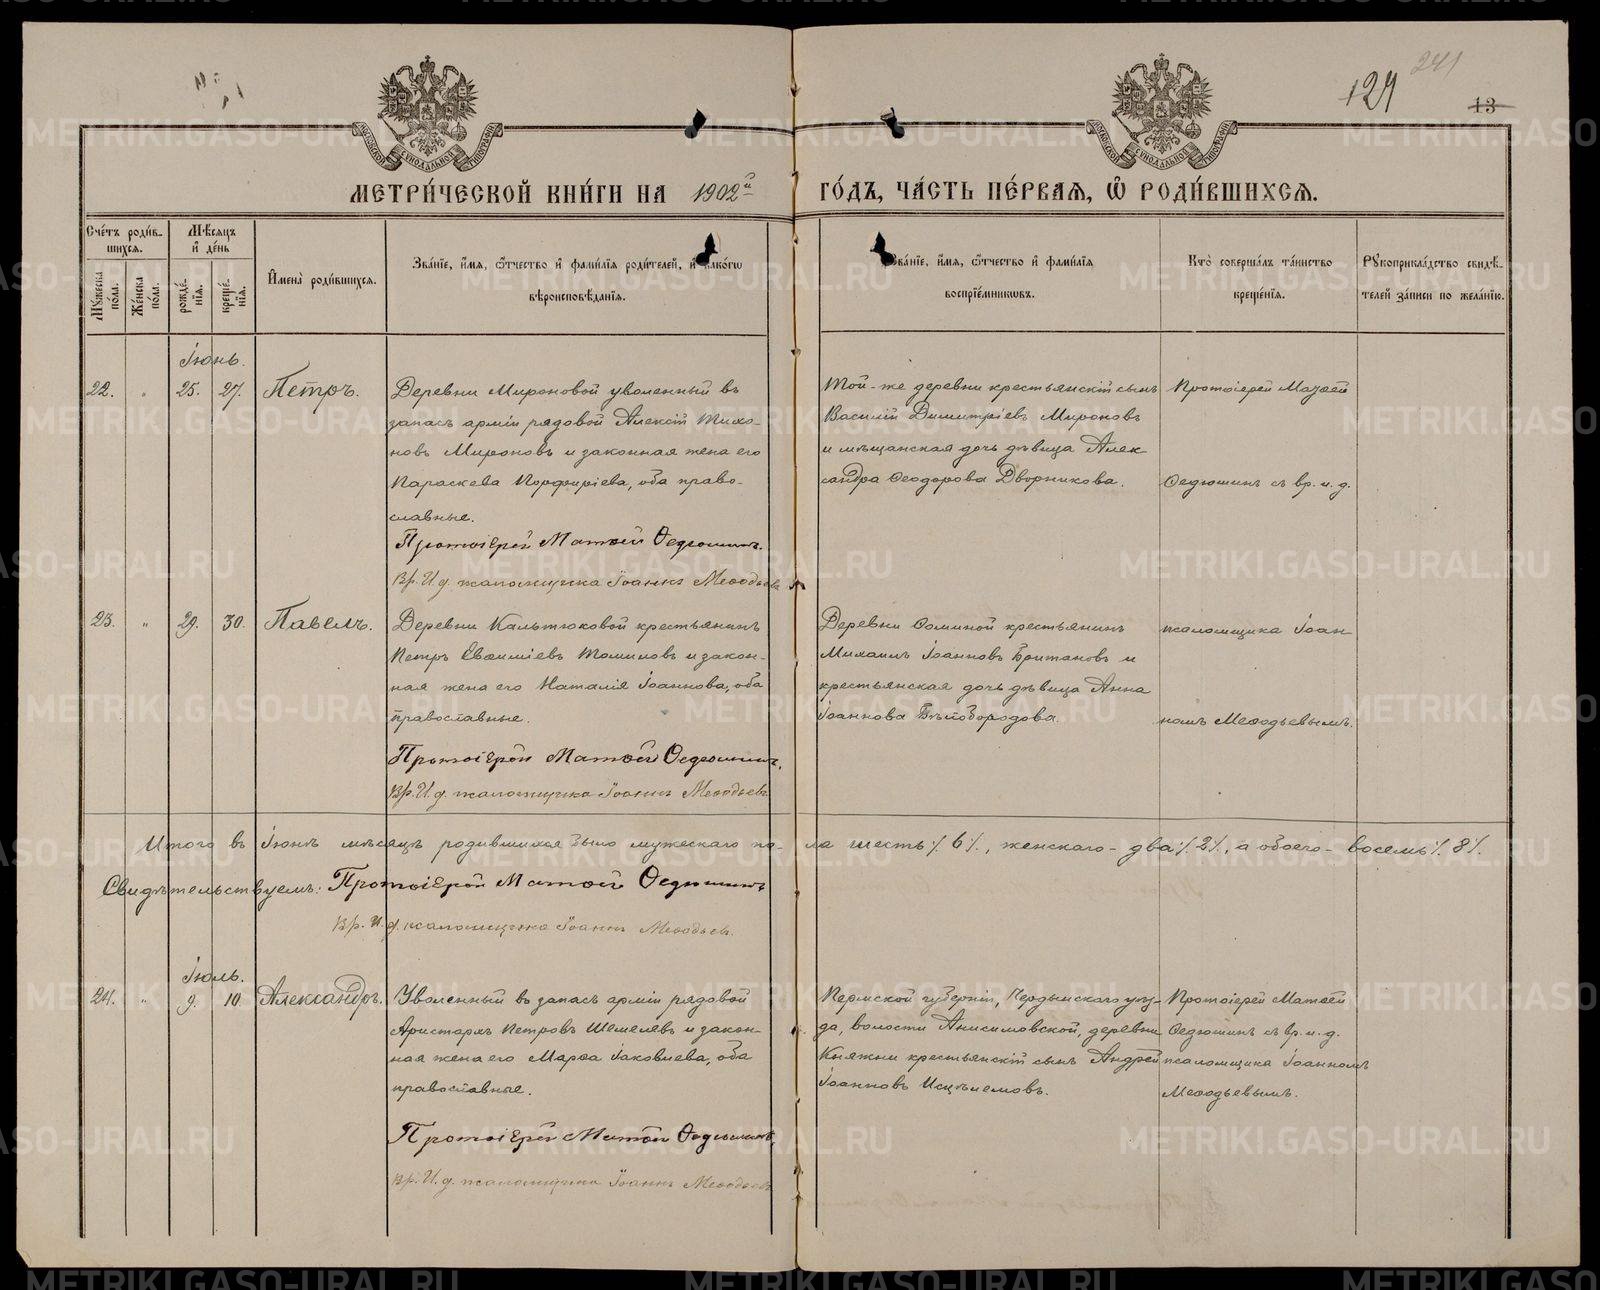 241
129
13
МЕТРИ́ЧЕСКОЙ КНИ́ГИ НА 1902й ГО́ДЪ, ЧА́СТЬ ПЕ́РВАЯ, Ѽ РОДИ́ВШИХСЯ.
Сче́тъ роди́в-
шихся.
Мѣ́сяцъ
и де́нь
Му́жеска по́ла.
Же́нска по́ла.
рожде́-
нія.
креще́-
нія.
И҆мена̀ роди́вшихся.
Зва́ніе, и҆́мя, ѻ҆́тчество и҆ фами́лія роди́телей, и҆ како́гѡ
вѣроисповѣ́данія.
Зва́ніе, и҆́мя, ѻ҆́тчество и҆ фами́лія
воспріе́мниковъ.
Кто̀ соверша́лъ та́инство
креще́нія.
Рꙋкоприкла́дство свидѣ́-
телей за́писи по жела́нію.
Іюнь.
22. " 25. 27. Петръ.
Деревни Мироновой уволенный въ
запасъ арміи рядовой Алексій Тихо-
новъ Мироновъ и законная жена его
Параскева Порфиріева, оба право-
славные.
Протоіерей Матѳей Ѳедюшинъ.
Вр. И. д. псаломщика Іоаннъ Меѳодьевъ
Той-же деревни крестьянскій сынъ
Василій Димитріевъ Мироновъ
и мѣщанская дочь дѣвица Алек
сандра Ѳеодорова Дворникова.
Протоіерей Матѳей
Ѳедюшинъ съ вр. и. д.
23. " 29. 30. Павелъ.
Деревни Кальтюковой крестьянинъ
Петръ Евѳиміевъ Томиловъ и закон-
ная жена его Наталія Іоаннова, оба
православные.
Протоіерей Матѳей Ѳедюшинъ.
Вр. И. д. псаломщика Іоаннъ Меѳодьевъ
Деревни Соминой крестьянинъ
Михаилъ Іоанновъ Британовъ и
крестьянская дочь дѣвица Анна
Іоаннова Бѣлобородова.
псаломщика Іоан
номъ Меѳодьевымъ.
Итого въ Іюнѣ мѣсяцѣ родившихся было мужескаго по- ла шесть ⁒ 6 ⁒, женскаго - два ⁒ 2 ⁒, а обоего - восемь ⁒ 8 ⁒.
Свидѣтельствуемъ: Протоіерей Матѳей Ѳедюшинъ
Вр. И. д. псаломщика Іоаннъ Меѳодьевъ.
Іюль.
24. " 9. 10. Александръ.
Уволенный въ запасъ арміи рядовой
Аристархъ Петровъ Шемелевъ и закон-
ная жена его Марѳа Іаковлева, оба
православные.
Протоіерей Матѳей Ѳедюшинъ,
Вр. И. д. псаломщика Іоаннъ Меѳодьевъ
Пермской губерніи, Чердынскаго уѣз-
да, волости Анисимовской, деревни
Княжни крестьянскій сынъ Андрей
Іоанновъ Исцѣлемовъ.
Протоіерей Матѳей
Ѳедюшинъ съ вр. и. д.
псаломщика Іоанномъ
Меѳодьевымъ.
METRIKI.GASO-URAL.RU